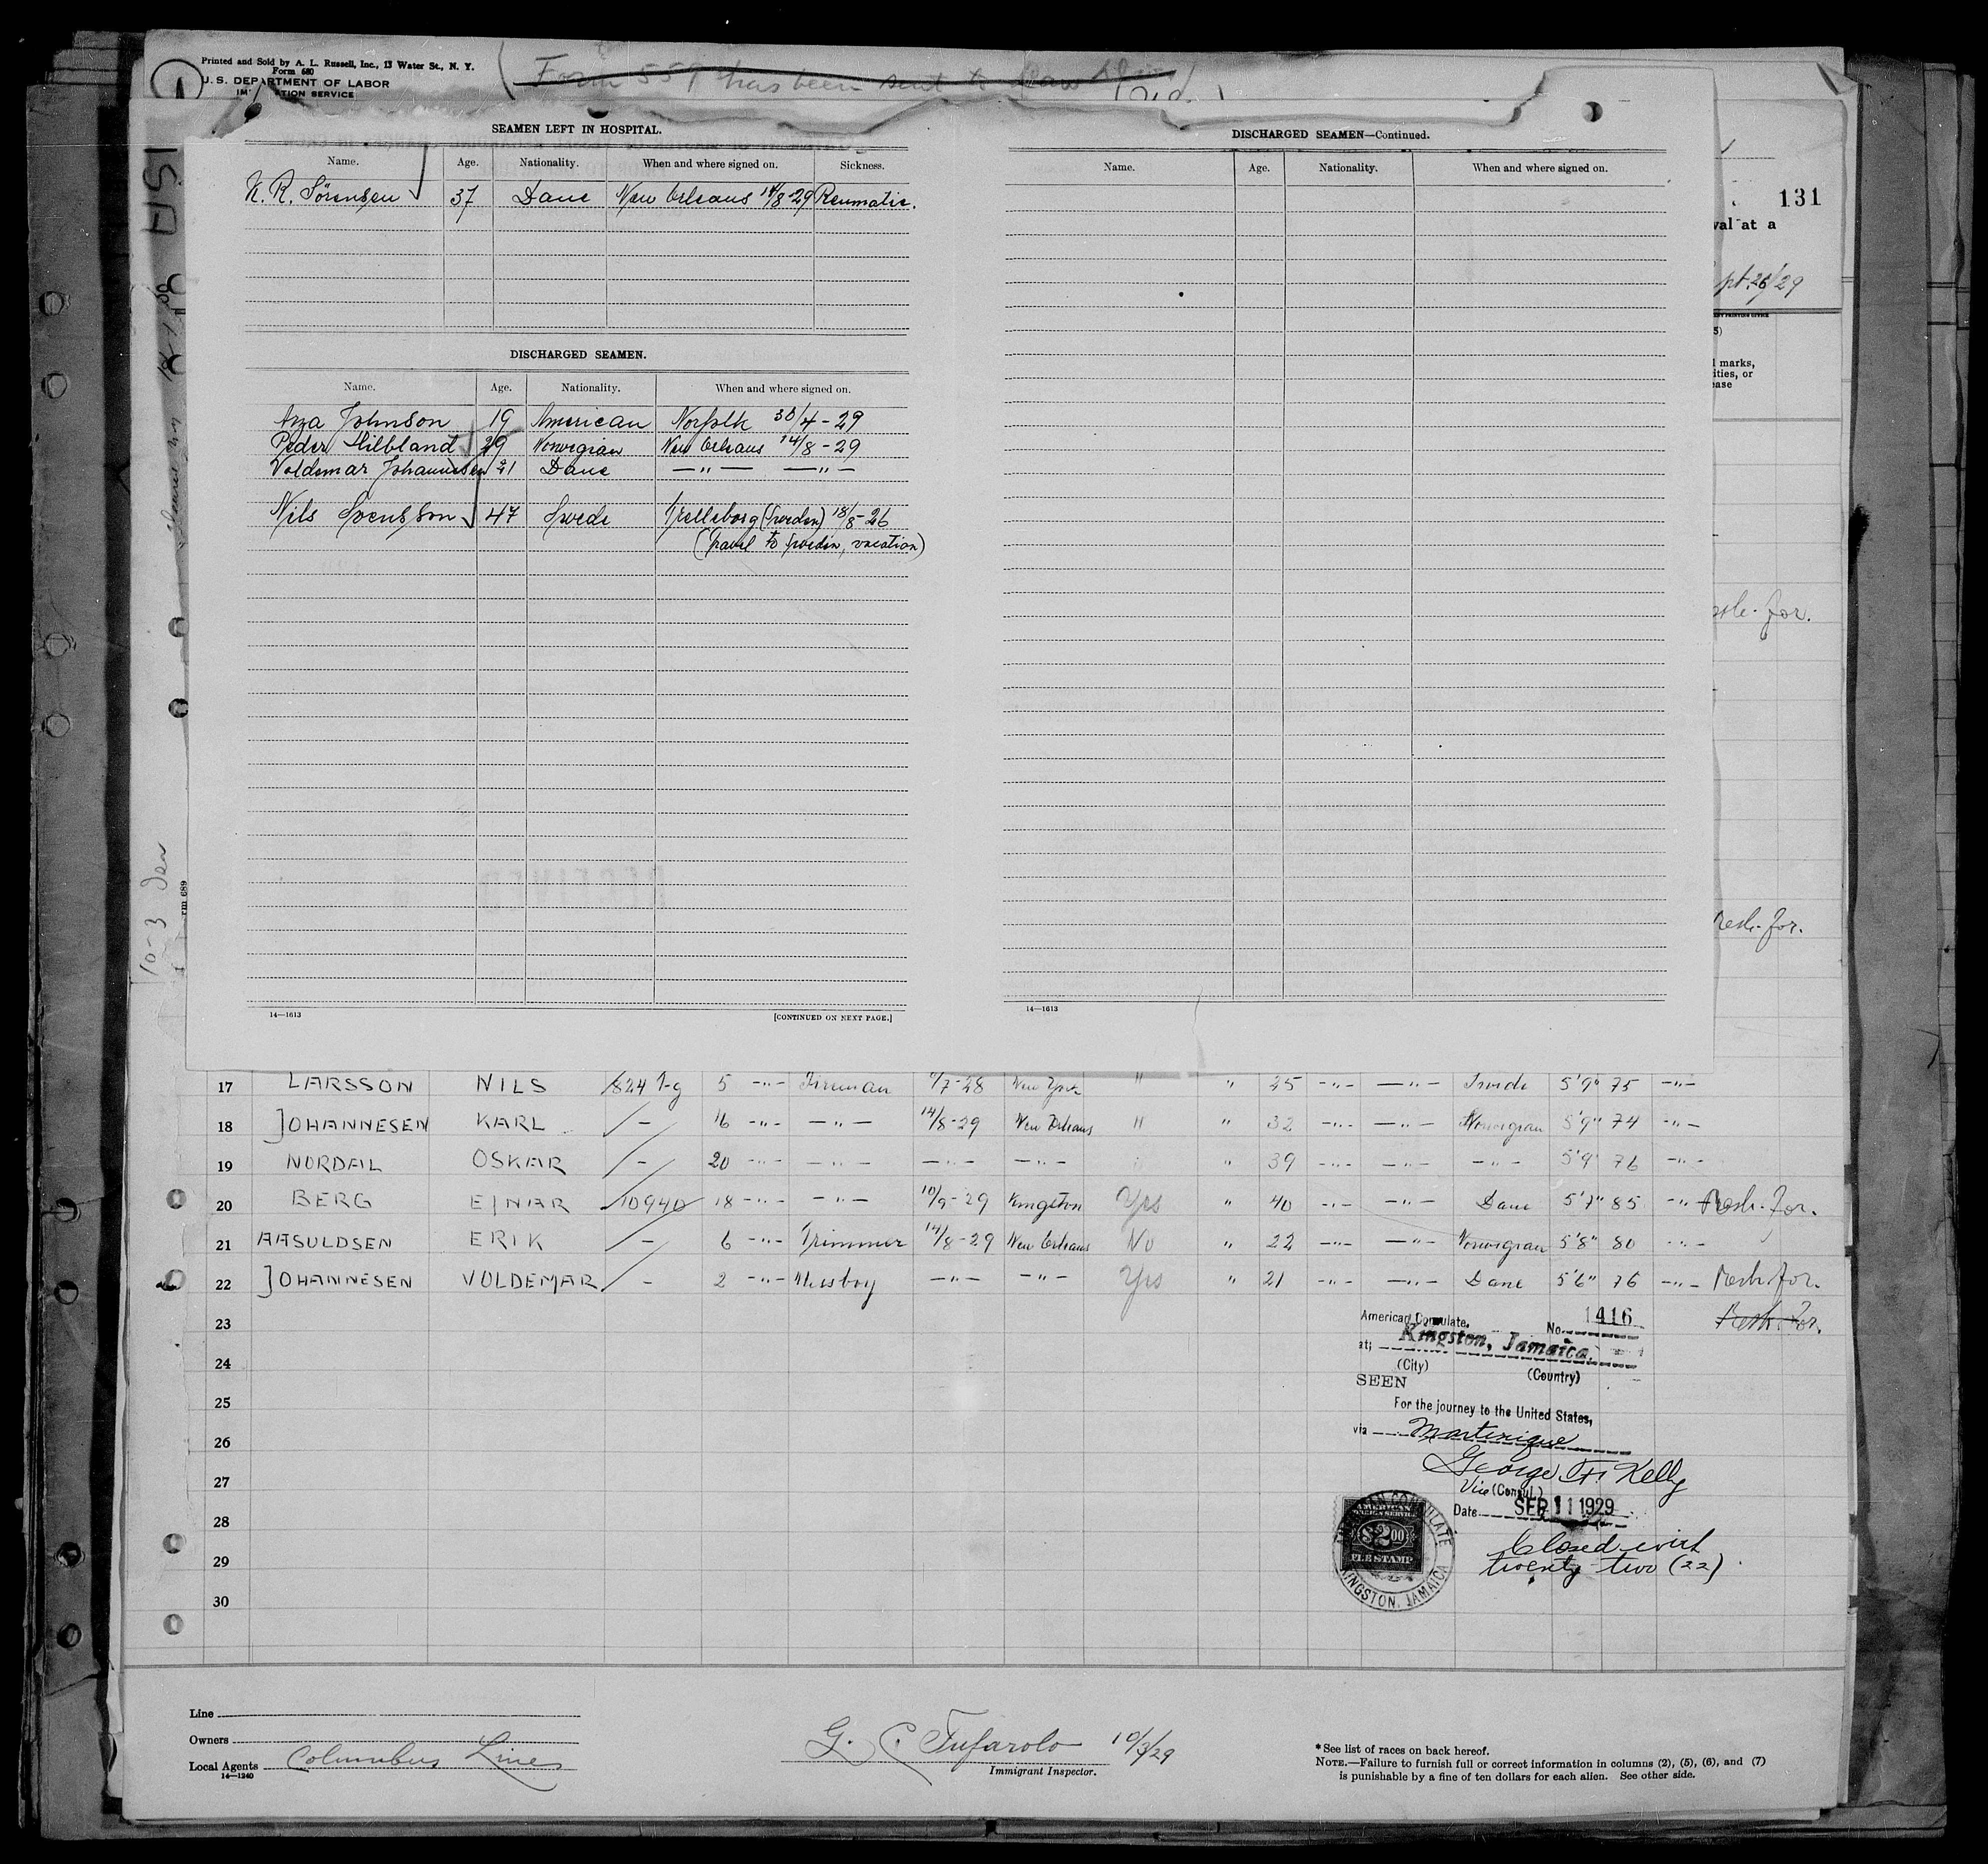 Printed and Sold by A. L. Russell, Inc., 13 Water St., N. Y.
Form 680
U.S. DEPARTMENT OF LABOR
(Form 559 has been sent to
SEAMEN LEFT IN HOSPITAL.
Name. Age. Nationality. When and where signed on. Sickness.
K. R. Sörensen 37 Dane New Orleans 14/8-29 Reumatic.
DISCHARGED SEAMEN.
Name. Age. Nationality. When and where signed on.
Johnson 19 American Norfolk 30/4-29
Peder 29 Norwegian New Orleans 14/8-29
Voldemar Johannesen 21 Dane —"— —"—
Nils Svensson 47 Swede Trelleborg (Sweden) 18/8-26
(travel to Sweden, vacation)
14—1613
[CONTINUED ON NEXT PAGE.]
DISCHARGED SEAMEN—Continued.
Name. Age. Nationality. When and where signed on.
14—1613
131
val at a
pt. 26/29
5)
l marks,
ities, or
ease
Resh. for.
Resh. for.
10-3
rm 689
17 LARSSON NILS 5 -"- Fireman 7-28 New York " " 25 -"- —"— Swede 5'9" 75 -"-
18 JOHANNESEN KARL — 16 -"- —"— 14/8-29 New Orleans " " 32 -"- —"— Norwegian 5'9" 74 -"-
19 NORDAL OSKAR — 20 -"- —"— —"— —"— " " 39 -"- —"— -"- 5'9" 76 -"-
20 BERG EJNAR 10940 18 -"- —"— 10/9-29 Kingston Yes " 40 -"- —"— Dane 5'7" 85 -"- Resh. for.
21 AASULDSEN ERIK — 6 -"- Trimmer 14/8-29 New Orleans No " 22 -"- —"— Norwegian 5'8" 80 -"-
22 JOHANNESEN VOLDEMAR — 2 -"- Messboy —"— —"— Yes " 21 -"- —"— Dane 5'6" 76 -"- Resh. for.
23 Resh. For.
24
25
26
27
28
29
30
American Consulate, No. 1416
at Kingston, Jamaica.
(City) (Country)
SEEN
For the journey to the United States,
via Martinique
George F. Kelly
Vice (Consul.)
Date SEP 11 1929
AMERICAN CONSULATE
KINGSTON, JAMAICA
$2.00
FEE STAMP
Closed with
twenty-two (22)
Line
Owners
Local Agents Columbus Lines
14—1240
G. C. Tufarolo 10/3/29
Immigrant Inspector.
*See list of races on back hereof.
NOTE.—Failure to furnish full or correct information in columns (2), (5), (6), and (7)
is punishable by a fine of ten dollars for each alien. See other side.